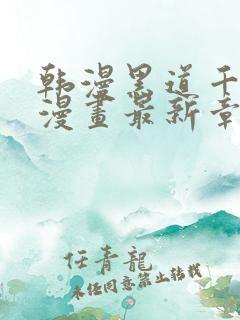 韩漫黑道千
漫畫最新章
任青龍
未经同意禁止转载